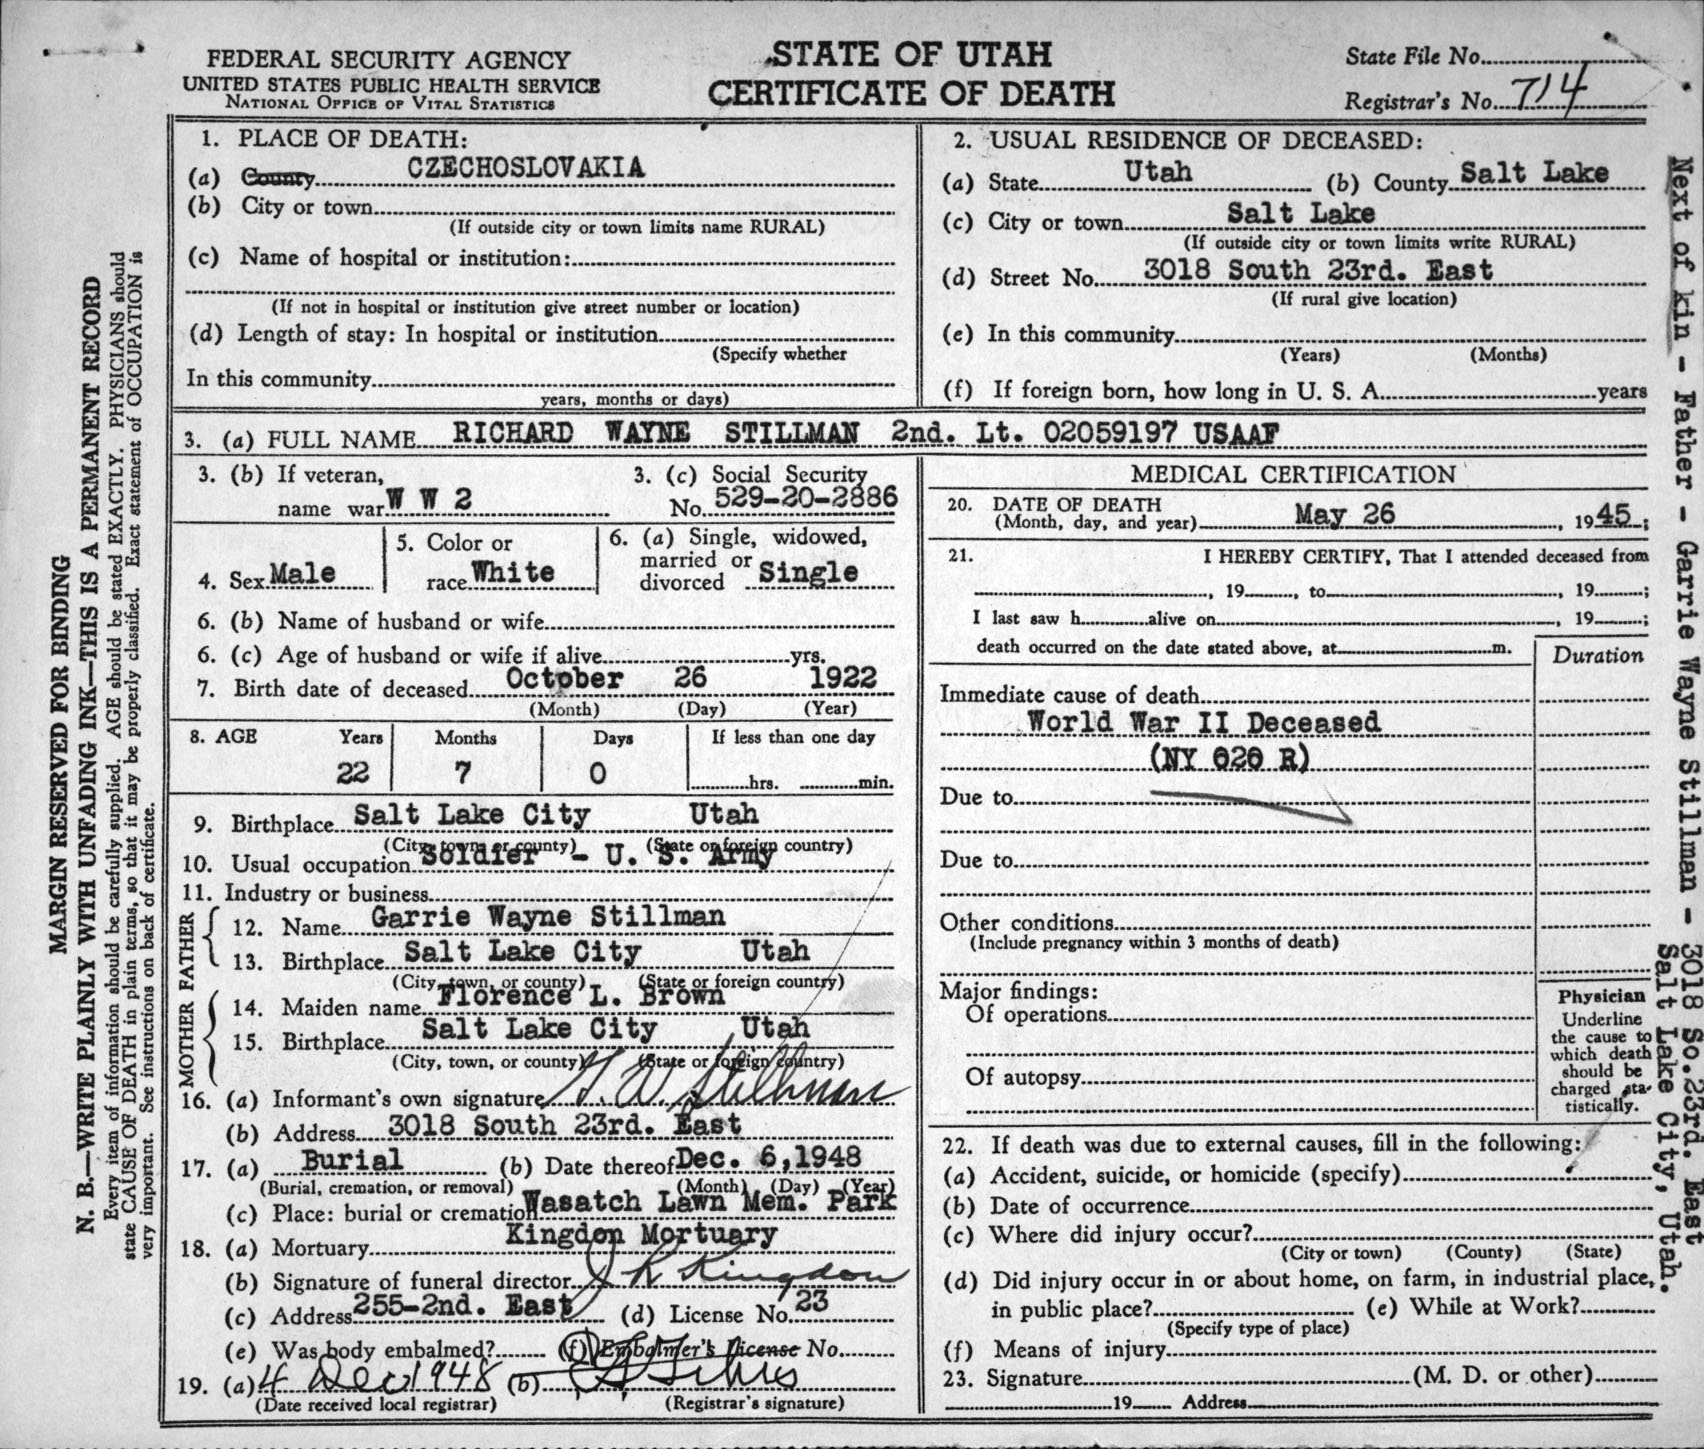 FEDERAL SECURITY AGENCY
UNITED STATES PUBLIC HEALTH SERVICE
NATIONAL OFFICE OF VITAL STATISTICS
STATE OF UTAH
CERTIFICATE OF DEATH
State File No.
Registrar's No. 714
1. PLACE OF DEATH:
(a) County CZECHOSLOVAKIA
(b) City or town
(If outside city or town limits name RURAL)
(c) Name of hospital or institution:
(If not in hospital or institution give street number or location)
(d) Length of stay: In hospital or institution
(Specify whether
In this community
years, months or days)
2. USUAL RESIDENCE OF DECEASED:
(a) State Utah (b) County Salt Lake
(c) City or town Salt Lake
(If outside city or town limits write RURAL)
(d) Street No. 3018 South 23rd. East
(If rural give location)
(e) In this community
(Years) (Months)
(f) If foreign born, how long in U. S. A. years
3. (a) FULL NAME RICHARD WAYNE STILLMAN 2nd. Lt. 02059197 USAAF
3. (b) If veteran,
name war W W 2
3. (c) Social Security
No. 529-20-2886
4. Sex Male
5. Color or
race White
6. (a) Single, widowed,
married or
divorced Single
6. (b) Name of husband or wife
6. (c) Age of husband or wife if alive yrs.
7. Birth date of deceased October 26 1922
(Month) (Day) (Year)
8. AGE Years Months Days If less than one day
22 7 0 hrs. min.
9. Birthplace Salt Lake City Utah
(City, town, or county) (State or foreign country)
10. Usual occupation Soldier - U. S. Army
11. Industry or business
FATHER
12. Name Garrie Wayne Stillman
13. Birthplace Salt Lake City Utah
(City, town, or county) (State or foreign country)
MOTHER
14. Maiden name Florence L. Brown
15. Birthplace Salt Lake City Utah
(City, town, or county) (State or foreign country)
16. (a) Informant's own signature G. W. Stillman
(b) Address 3018 South 23rd. East
17. (a) Burial (b) Date thereof Dec. 6, 1948
(Burial, cremation, or removal) (Month) (Day) (Year)
(c) Place: burial or cremation Wasatch Lawn Mem. Park
18. (a) Mortuary Kingdon Mortuary
(b) Signature of funeral director J R Kingdon
(c) Address 255-2nd. East (d) License No. 23
(e) Was body embalmed? (f) Embalmer's License No.
19. (a) 4 Dec 1948 (b)
(Date received local registrar) (Registrar's signature)
MEDICAL CERTIFICATION
20. DATE OF DEATH
(Month, day, and year) May 26, 1945;
21. I HEREBY CERTIFY, That I attended deceased from
, 19 , to , 19 ;
I last saw h alive on , 19 ;
death occurred on the date stated above, at m.
Duration
Immediate cause of death
World War II Deceased
(NY 020 R)
Due to
Due to
Other conditions
(Include pregnancy within 3 months of death)
Major findings:
Of operations
Of autopsy
Physician
Underline
the cause to
which death
should be
charged sta-
tistically.
22. If death was due to external causes, fill in the following:
(a) Accident, suicide, or homicide (specify)
(b) Date of occurrence
(c) Where did injury occur?
(City or town) (County) (State)
(d) Did injury occur in or about home, on farm, in industrial place,
in public place? (e) While at Work?
(Specify type of place)
(f) Means of injury
23. Signature (M. D. or other)
19 Address
MARGIN RESERVED FOR BINDING
N. B.—WRITE PLAINLY WITH UNFADING INK—THIS IS A PERMANENT RECORD
Every item of information should be carefully supplied. AGE should be stated EXACTLY. PHYSICIANS should
state CAUSE OF DEATH in plain terms, so that it may be properly classified. Exact statement of OCCUPATION is
very important. See instructions on back of certificate.
Next of kin - Father - Garrie Wayne Stillman - 3018 So. 23rd. East
Salt Lake City, Utah.